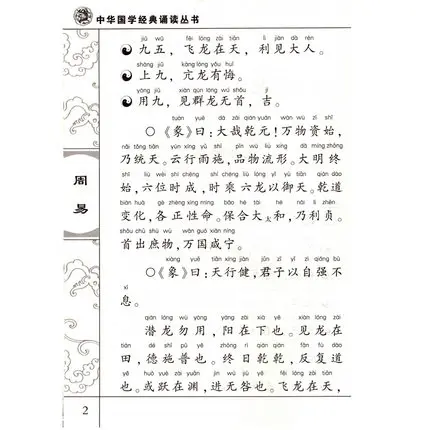 中华国学经典诵读丛书
jiǔ wǔ fēi lóng zài tiān lì jiàn dà rén
九五，飞龙在天，利见大人。
shàng jiǔ kàng lóng yǒu huǐ
上九，亢龙有悔。
yòng jiǔ xiàn qún lóng wú shǒu jí
用九，见群龙无首，吉。
tuàn yuē dà zāi qián yuán wàn wù zī shǐ
○《彖》曰：大哉乾元！万物资始，
nǎi tǒng tiān yún xíng yǔ shī pǐn wù liú xíng dà míng zhōng
乃统天。云行雨施，品物流形。大明终
shǐ liù wèi shí chéng shí chéng liù lóng yǐ yù tiān qián dào
始，六位时成，时乘六龙以御天。乾道
biàn huà gè zhèng xìng mìng bǎo hé tài hé nǎi lì zhēn
变化，各正性命。保合大太和，乃利贞。
shǒu chū shù wù wàn guó xián níng
首出庶物，万国咸宁。
xiàng yuē tiān xíng jiàn jūn zǐ yǐ zì qiáng bù
○《象》曰：天行健，君子以自强不
xī
息。
qián lóng wù yòng yáng zài xià yě xiàn lóng zài
潜龙勿用，阳在下也。见龙在
tián dé shī pǔ yě zhōng rì qián qián fǎn fù dào
田，德施普也。终日乾乾，反复道
yě huò yuè zài yuān jìn wú jiù yě fēi lóng zài tiān
也。或跃在渊，进无咎也。飞龙在天，
周易
2